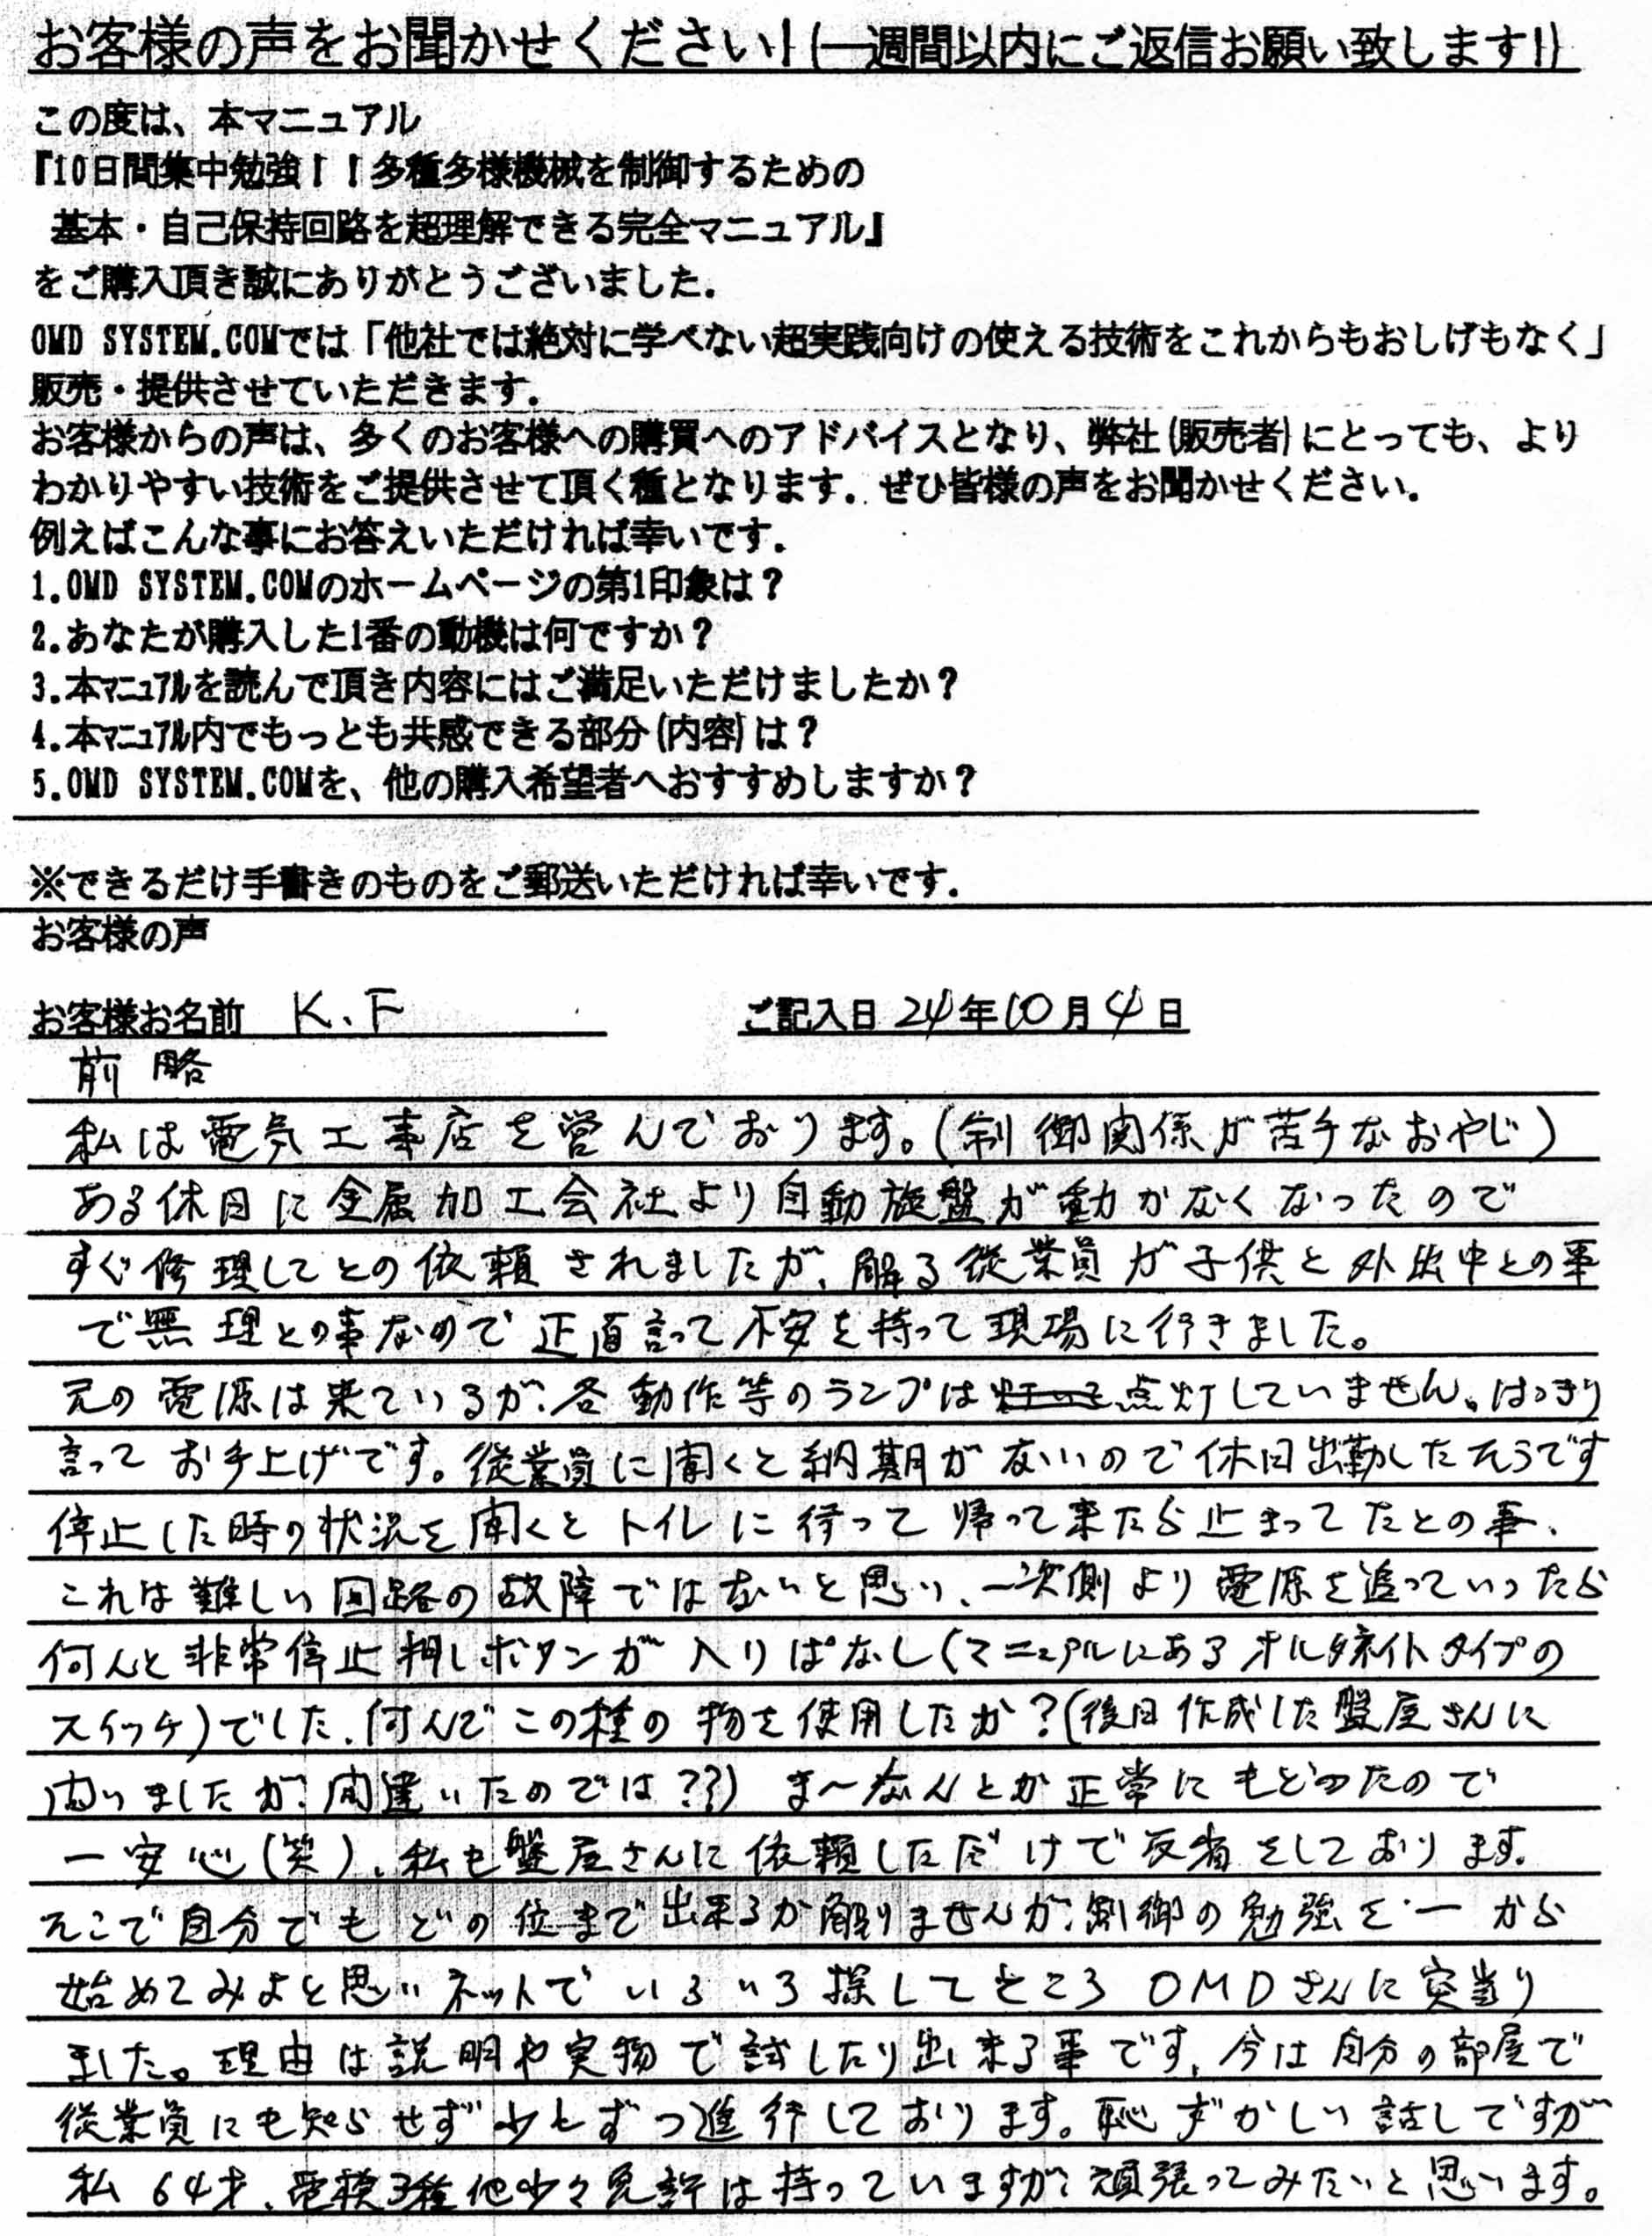 お客様の声をお聞かせください!(一週間以内にご返信お願い致します!)
この度は、本マニュアル
『10日間集中勉強!!多種多様機械を制御するための
基本・自己保持回路を超理解できる完全マニュアル』
をご購入頂き誠にありがとうございました.
OMD SYSTEM.COMでは「他社では絶対に学べない超実践向けの使える技術をこれからもおしげもなく」
販売・提供させていただきます.
お客様からの声は、多くのお客様への購買へのアドバイスとなり、弊社(販売者)にとっても、より
わかりやすい技術をご提供させて頂く種となります. ぜひ皆様の声をお聞かせください.
例えばこんな事にお答えいただければ幸いです.
1.OMD SYSTEM.COMのホームページの第1印象は?
2.あなたが購入した1番の動機は何ですか?
3.本マニュアルを読んで頂き内容にはご満足いただけましたか?
4.本マニュアル内でもっとも共感できる部分(内容)は?
5.OMD SYSTEM.COMを、他の購入希望者へおすすめしますか?
※できるだけ手書きのものをご郵送いただければ幸いです.
お客様の声
お客様お名前 K.F ご記入日 24年10月4日
前略
私は電気工事店を営んでおります。(制御関係が苦手なおやじ)
ある休日に金属加工会社より自動旋盤が動かなくなったので
すぐ修理してとの依頼されましたが、解る従業員が子供と外出中との事
で無理との事なので正直言って不安を持って現場に行きました。
元の電源は来ているが、各動作等のランプは点灯していません。はっきり
言ってお手上げです。従業員に聞くと納期がないので休日出勤したそうです
停止した時の状況を聞くとトイレに行って帰って来たら止まってたとの事、
これは難しい回路の故障ではないと思い、一次側より電源を追っていったら
何んと非常停止押しボタンが入りぱなし(マニュアルにあるオルタネイトタイプの
スイッチ)でした、何んでこの種の物を使用したか?(後日作成した盤屋さんに
問いましたが、間違いたのでは??)ま〜なんとか正常にもどったので
一安心(笑)、私も盤屋さんに依頼しただけで反省をしております.
そこで自分でもどの位まで出来るか解りませんが、制御の勉強を一から
始めてみよと思いネットでいろいろ探してところOMDさんに突当り
ました。理由は説明や実物で試したり出来る事です、今は自分の部屋で
従業員にも知らせず少しずつ進行しております。恥ずかしい話しですが
私64才、電検3種他少々免許は持っていますが、頑張ってみたいと思います。